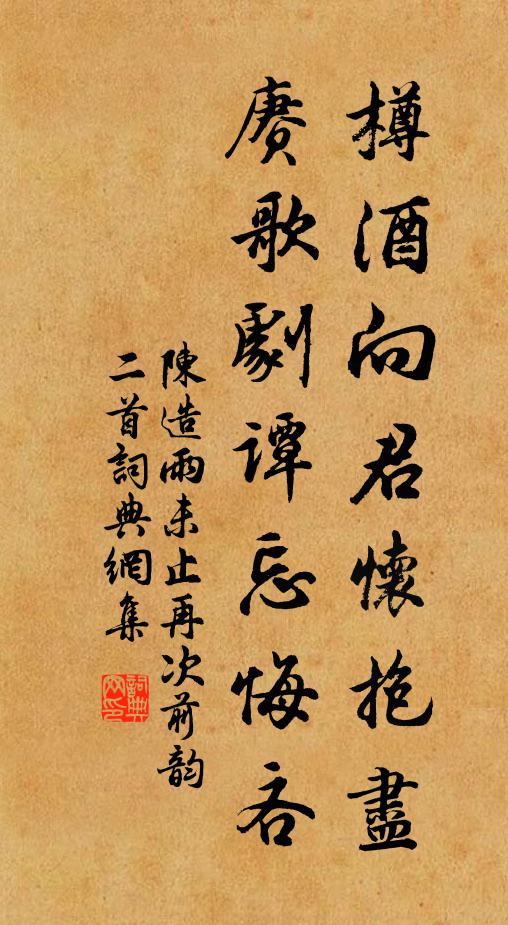 樽酒向君懷抱盡
賡歌劇譚忘悔吝
陳造雨未止再次前韵
二首詞典網集
詞典網印